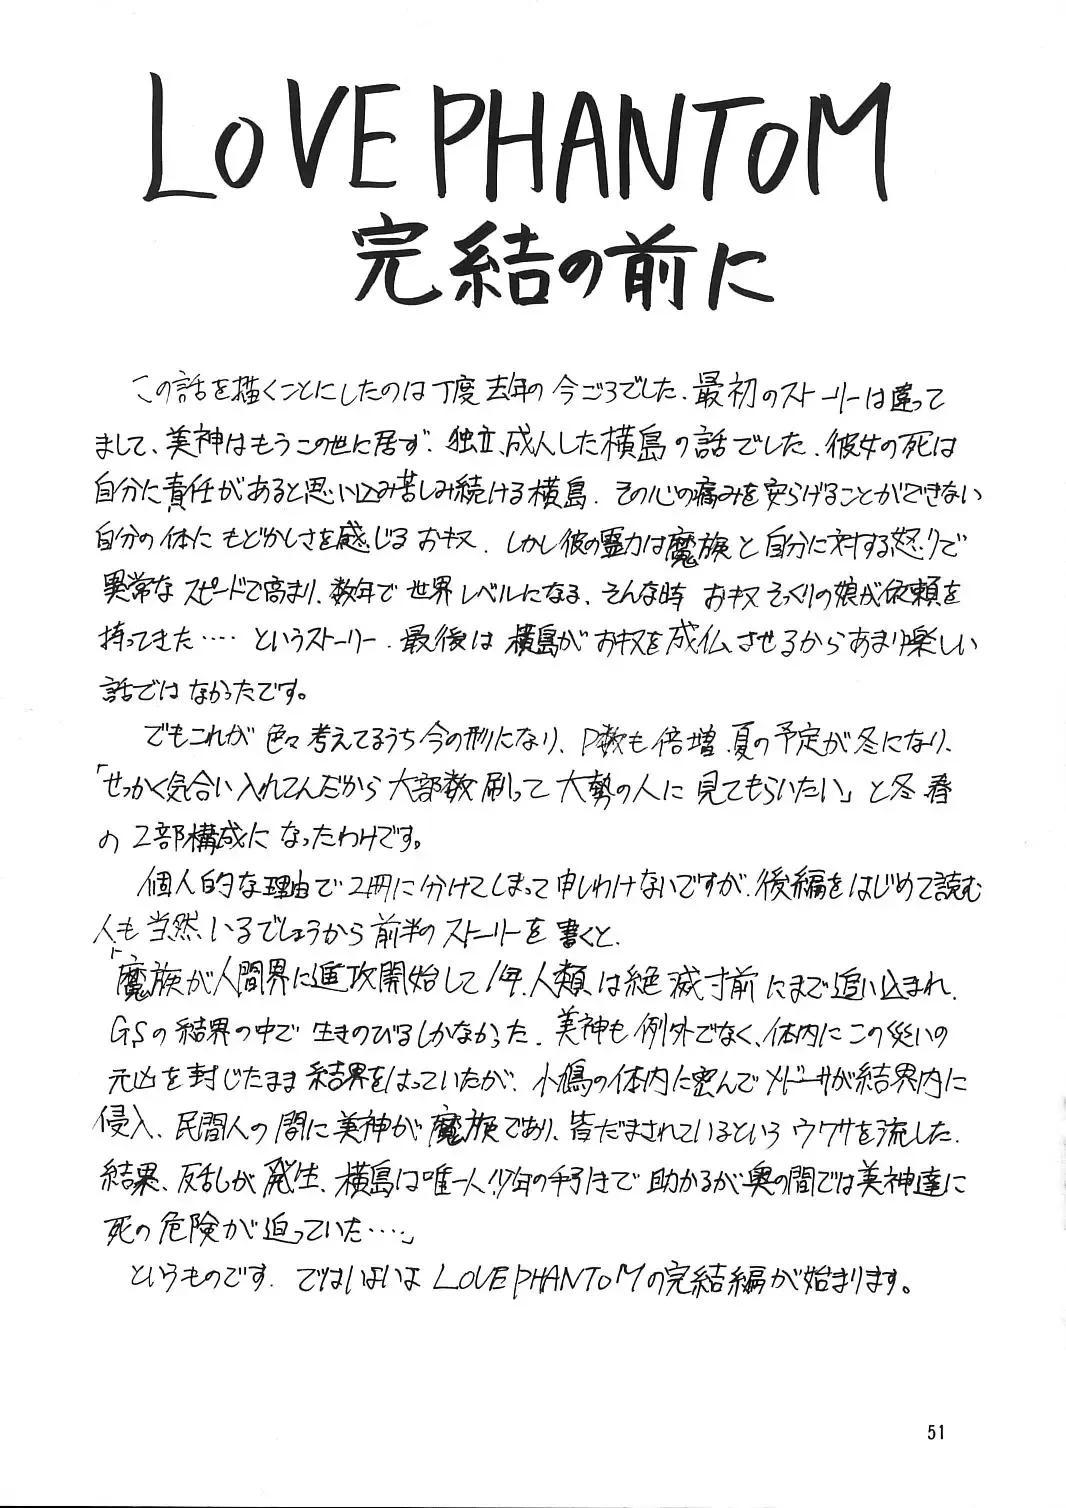 LOVE PHANTOM
完結の前に
この話を描くことにしたのは丁度去年の今ごろでした.最初のストーリーは違って
まして、美神はもうこの世に居ず、独立、成人した横島の話でした.彼女の死は
自分に責任があると思い込み苦しみ続ける横島.その心の痛みを安らげることができない
自分の体にもどかしさを感じるおキヌ.しかし彼の霊力は魔族と自分に対する怒りで
異常なスピードで高まり、数年で世界レベルになる、そんな時おキヌそっくりの娘が依頼を
持ってきた‥‥というストーリー.最後は横島がおキヌを成仏させるからあまり楽しい
話ではなかったです。
でもこれが色々考えてるうち今の形になり、P数も倍増.夏の予定が冬になり、
「せっかく気合い入れてんだから大部数刷って大勢の人に見てもらいたい」と冬、春
の2部構成になったわけです。
個人的な理由で2冊に分けてしまって申しわけないですが、後編をはじめて読む
人も当然、いるでしょうから前半のストーリーを書くと、
「魔族が人間界に進攻開始して1年.人類は絶滅寸前にまで追い込まれ、
GSの結界の中で生きのびるしかなかった.美神も例外でなく、体内にこの災いの
元凶を封じたまま結界をはっていたが、小鳩の体内に密んでメドーサが結界内に
侵入、民間人の間に美神が魔族であり、皆だまされているというウワサを流した.
結果、反乱が発生、横島は唯一人少年の手引きで助かるが奥の間では美神達に
死の危険が迫っていた‥‥」
というものです.ではいよいよLOVE PHANTOMの完結編が始まります。
51